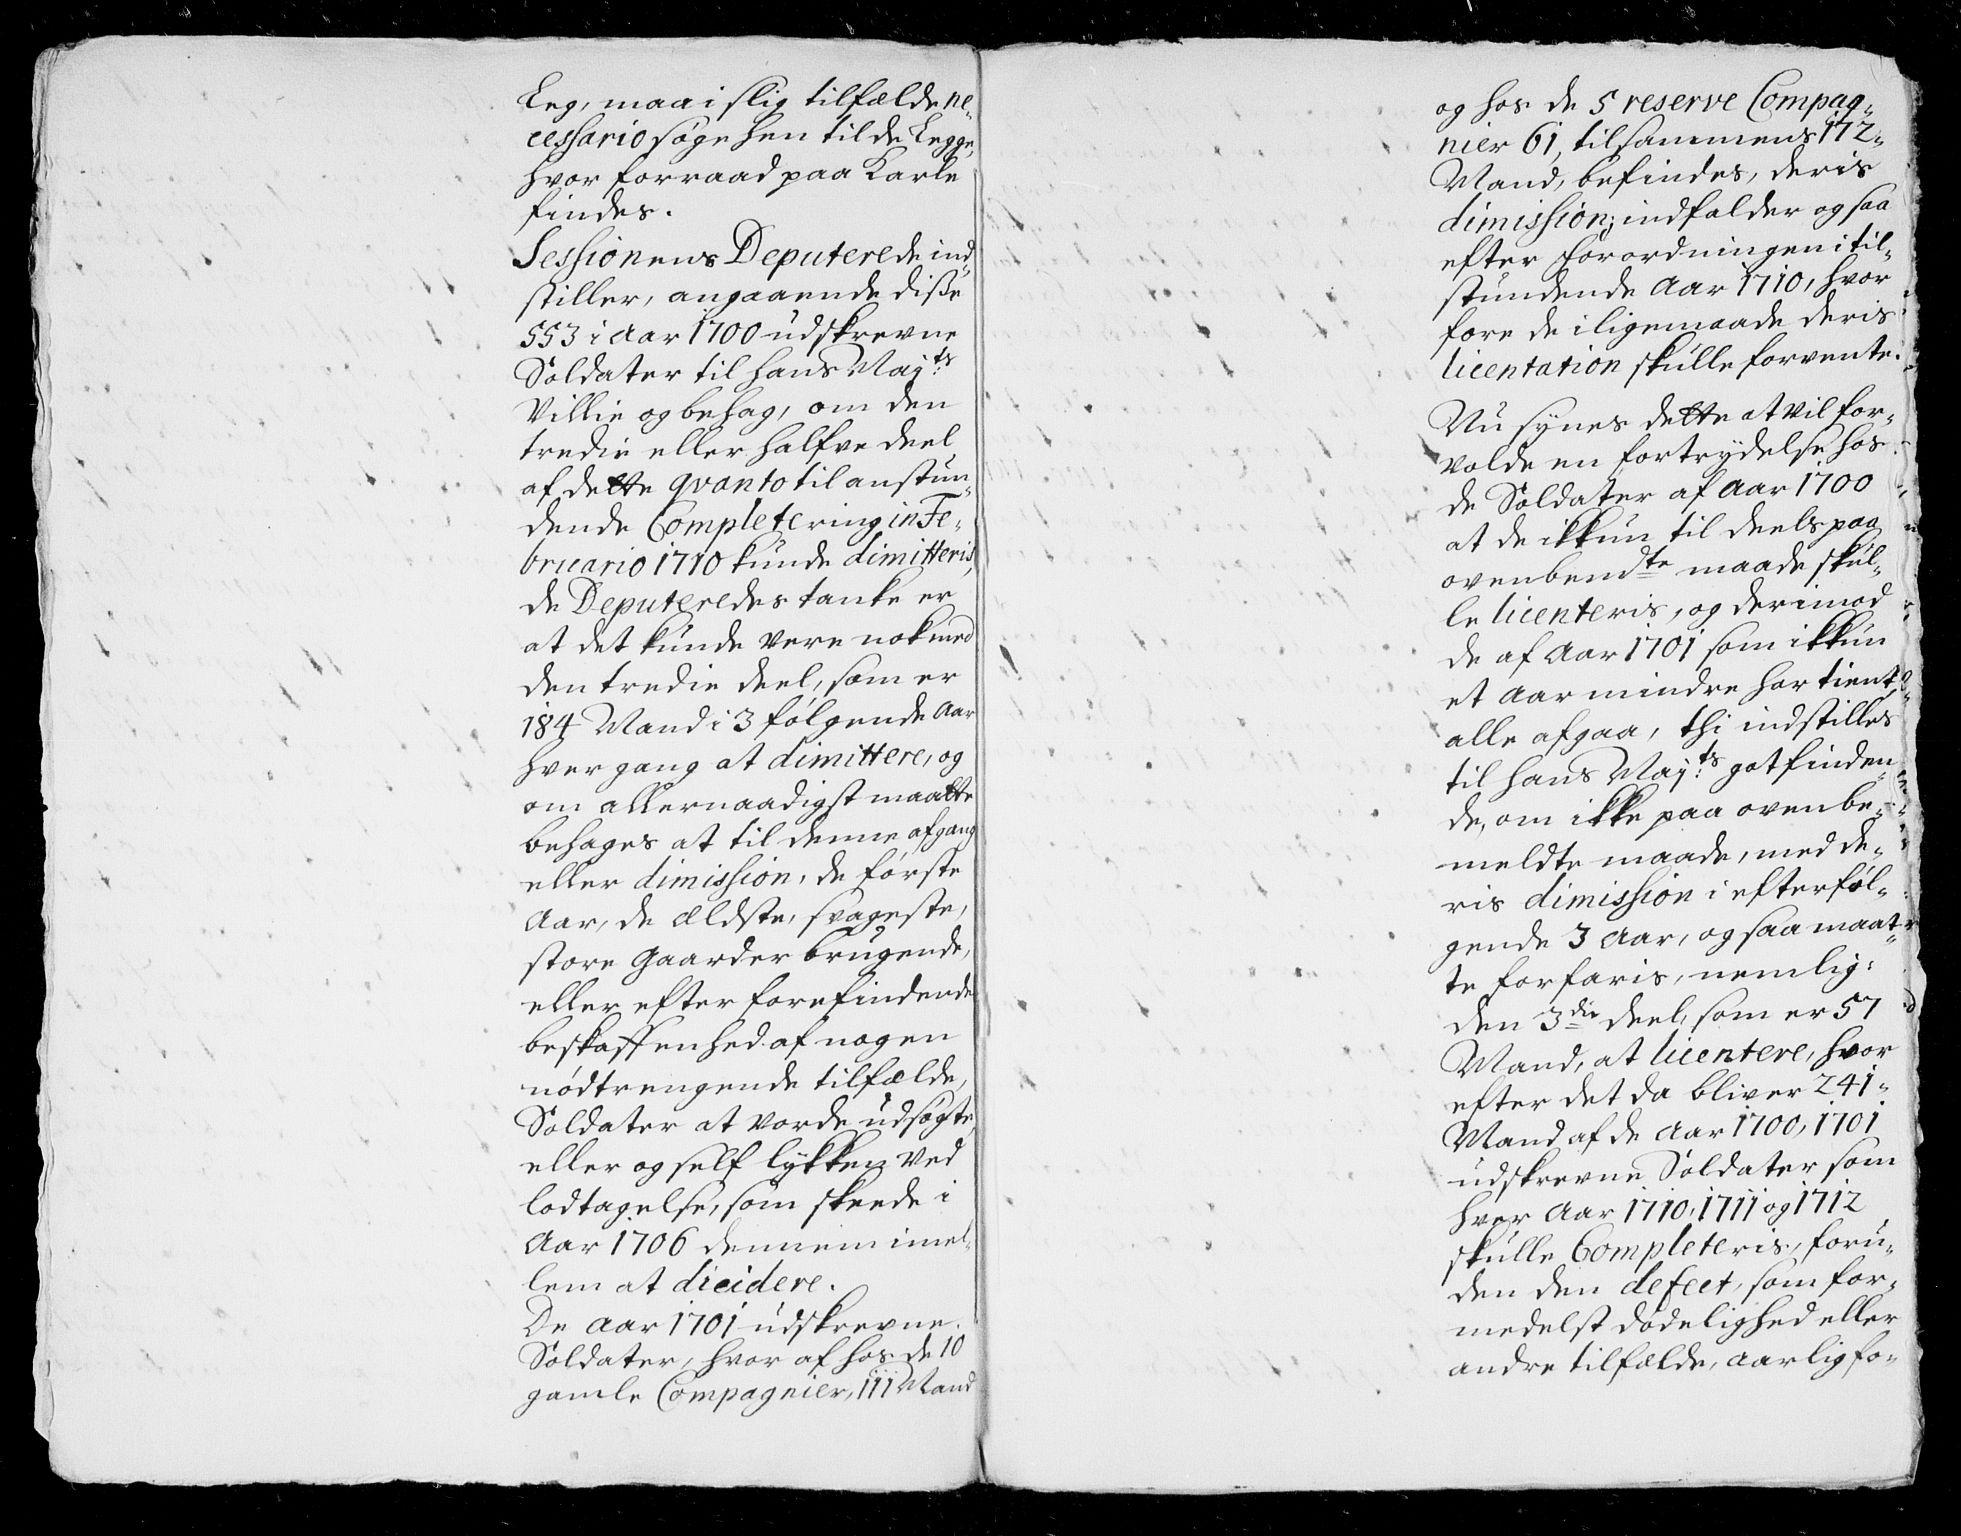 Leg, maa i slig tilfælde ne-
cessario søge hen til de Legge,
hvor forraad paa Karle
findes.
Sessionens Deputerede ind-
stiller, angaaende disse
553 i Aar 1700 udskrevne
Soldater til hans Maj:ts
Villie og behag, om den
tredie eller halfve deel
af dette qvanto til anstun-
dende Completering in Fe-
bruario 1710 kunde dimitteris,
de Deputeredes tanke er
at det kunde vere nok med
den tredie deel, som er
184 Mand i 3 følgende Aar
hver gang at dimittere, og
om allernaadigst maatte
behages at til denne afgang
eller dimission, de første
Aar, de ældste, svageste,
store Gaarder brugende,
eller efter forefindende
beskaffenhed af nogen
nødtrengende tilfælde,
Soldater at vorde udsøgte,
eller og self lykken ved
lodtagelse, som skeede i
Aar 1706 dennem imel-
lem at dicidere.
De Aar 1701 udskrevne
Soldater, hvor af hos de 10
gamle Compagnier, 111 Mand
og hos de 5 reserve Compag-
nier 61, tilsammens 172
Mand, befindes, deris
dimission, indfalder og saa
efter Forordningen i til-
stundende Aar 1710, hvor
fore de i ligemaade deris
licentation skulle forvente.
Nu synes dette at vil for-
volde en fortrydelse hos
de Soldater af Aar 1700
at de ikkun til deels paa
ovenbemdte maade skul-
le licenteris, og derimod
de af Aar 1701 som ikkun
et Aar mindre har tient,
alle afgaa, thi indstilles
til hans Maj:ts gotfinden-
de, om ikke paa ovenbe-
meldte maade, med de-
ris dimission i efterføl-
gende 3 Aar, og saa maat-
te forfaris, nemlig:
den 3die deel, som er 57
Mand, at licentere, hvor
efter det da bliver 241
Mand af de Aar 1700, 1701
udskrevne Soldater som
hver Aar 1710, 1711 og 1712
skulle Completeris, foru-
den den defect, som for-
medelst dødelighed eller
andre tilfælde, aarlig fo-